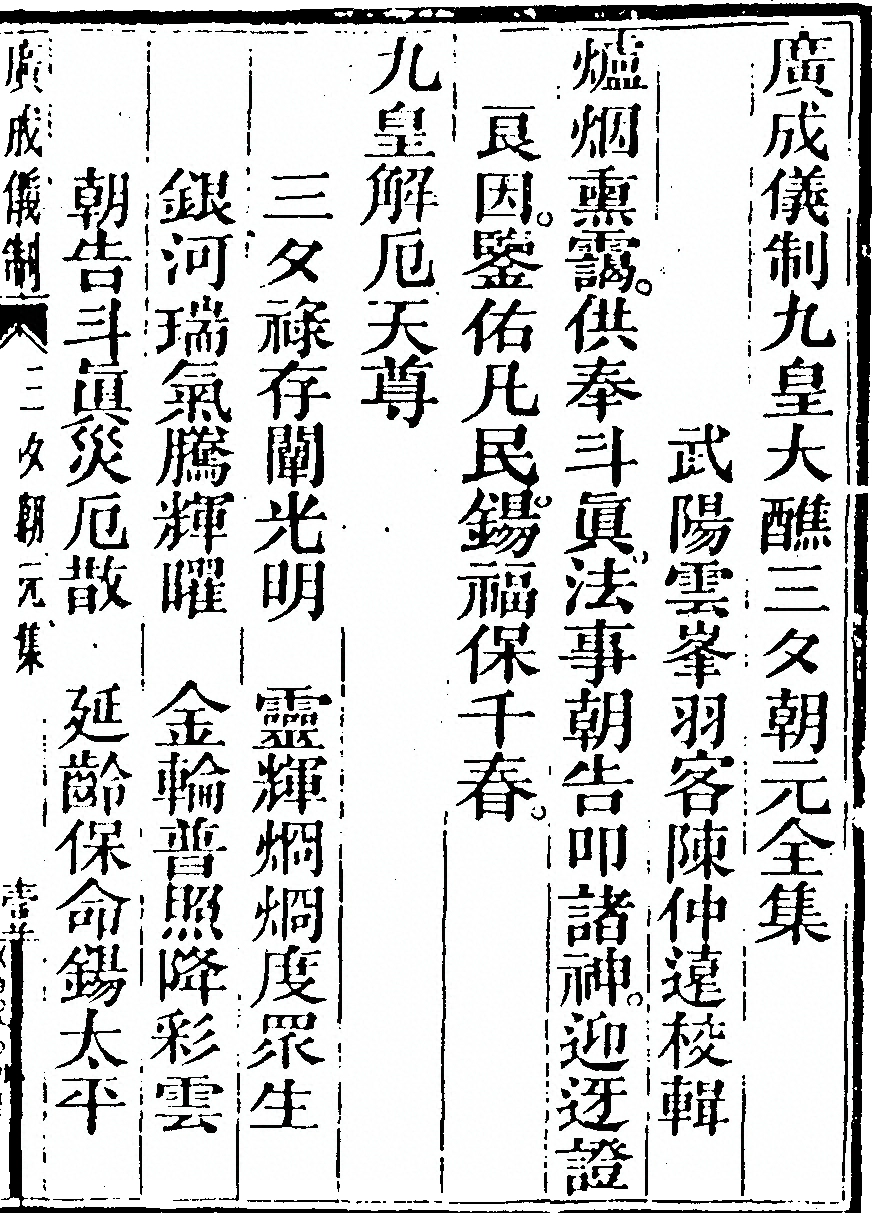 廣成儀制九皇大醮三夕朝元全集
武陽雲峯羽客陳仲遠校輯
爐烟熏靄。供奉斗眞。法事朝告叩諸神。迎迓證
良因。鑒佑凡民。錫福保千春。
九皇解厄天尊
三夕祿存闡光明 靈輝烱烱度眾生
銀河瑞氣騰輝曜 金輪普照降彩雲
朝告斗眞災厄散 延齡保命錫太平
廣成儀制 三夕朝元集